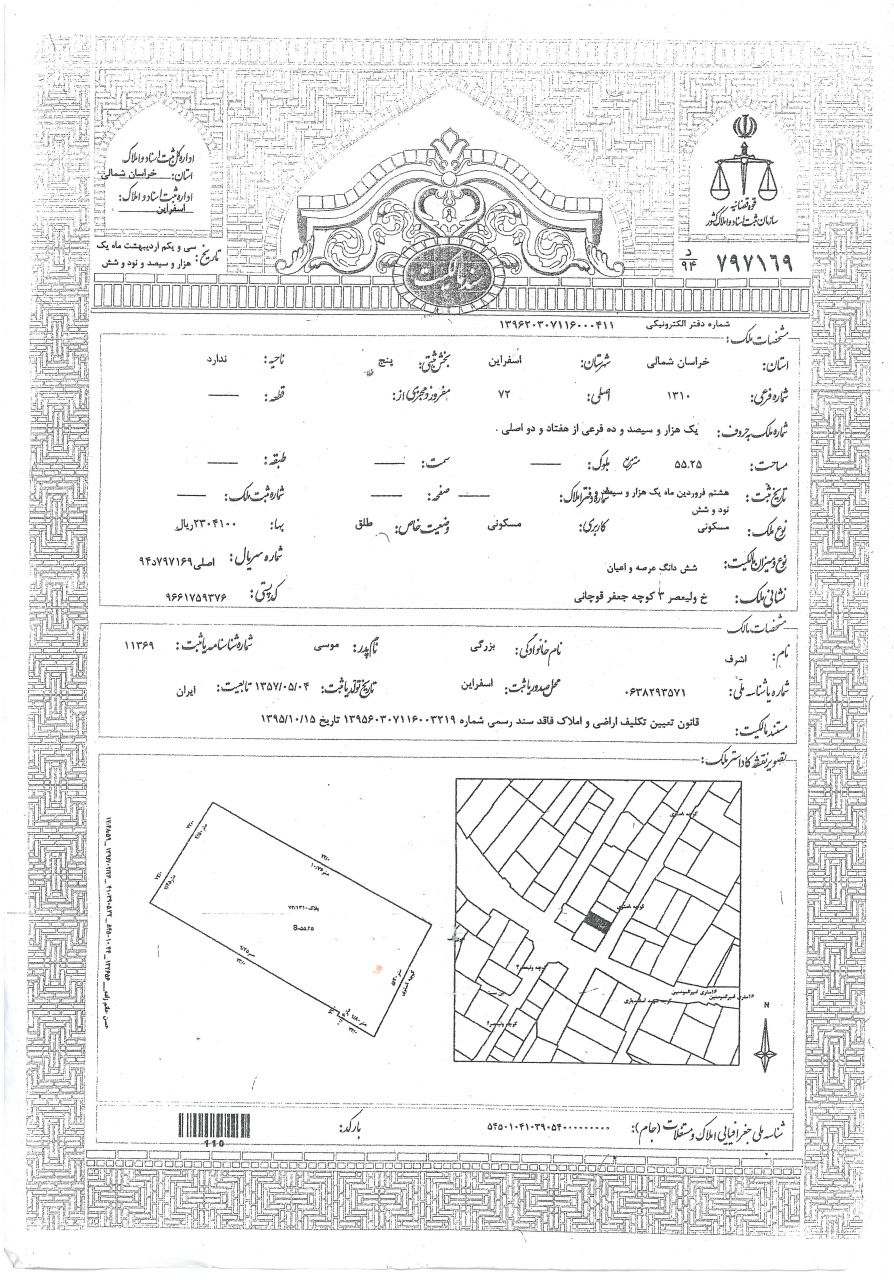 اداره کل ثبت اسناد و املاک
استان: خراسان شمالی
اداره ثبت اسناد و املاک:
اسفراین
تاریخ: سی و یکم اردیبهشت ماه یک
هزار و سیصد و نود و شش
سند مالکیت
قوه قضائیه
سازمان ثبت اسناد و املاک کشور
د
۹۴
۷۹۷۱۶۹
شماره دفتر الکترونیکی ۱۳۹۶۲۰۳۰۷۱۱۶۰۰۰۴۱۱
مشخصات ملک:
استان: خراسان شمالی شهرستان: اسفراین بخش ثبتی: پنج ناحیه: ندارد
شماره فرعی: ۱۳۱۰ اصلی: ۷۲ مفروز و مجزی از: —— قطعه: ——
شماره ملک به حروف: یک هزار و سیصد و ده فرعی از هفتاد و دو اصلی .
مساحت: ۵۵.۲۵ متر مربع بلوک: —— سمت: —— طبقه: ——
تاریخ ثبت: هشتم فروردین ماه یک هزار و سیصد و نود و شش شماره دفتر املاک: —— صفحه: —— شماره ثبت ملک: ——
نوع ملک: مسکونی کاربری: مسکونی وضعیت خاص: طلق بها: ۲۳۰۴۱۰۰ ریال
نوع و میزان مالکیت: شش دانگ عرصه و اعیان شماره سریال: اصلی ۷۹۷۱۶۹د۹۴
نشانی ملک: خ ولیعصر ۳ کوچه جعفر قوچانی کد پستی: ۹۶۶۱۷۵۹۳۷۶
مشخصات مالک
نام: اشرف نام خانوادگی: بزرگی نام پدر: موسی شماره شناسنامه یا ثبت: ۱۱۳۶۹
شماره یا شناسه ملی: ۰۶۳۸۲۹۳۵۷۱ محل صدور یا ثبت: اسفراین تاریخ تولد یا ثبت: ۱۳۵۷/۰۵/۰۴ تابعیت: ایران
مستند مالکیت: قانون تعیین تکلیف اراضی و املاک فاقد سند رسمی شماره ۱۳۹۵۶۰۳۰۷۱۱۶۰۰۳۲۱۹ تاریخ ۱۳۹۵/۱۰/۱۵
تصویر نقشه کاداستر ملک:
پلاک ۷۲/۱۳۱۰
S=۵۵.۲۵
N
شناسه ملی جغرافیایی املاک و مستغلات (جام): ۵۴۵۰۱۰۴۱۰۳۹۰۵۴۰۰۰۰۰۰۰۰۰۰
بارکد:
110